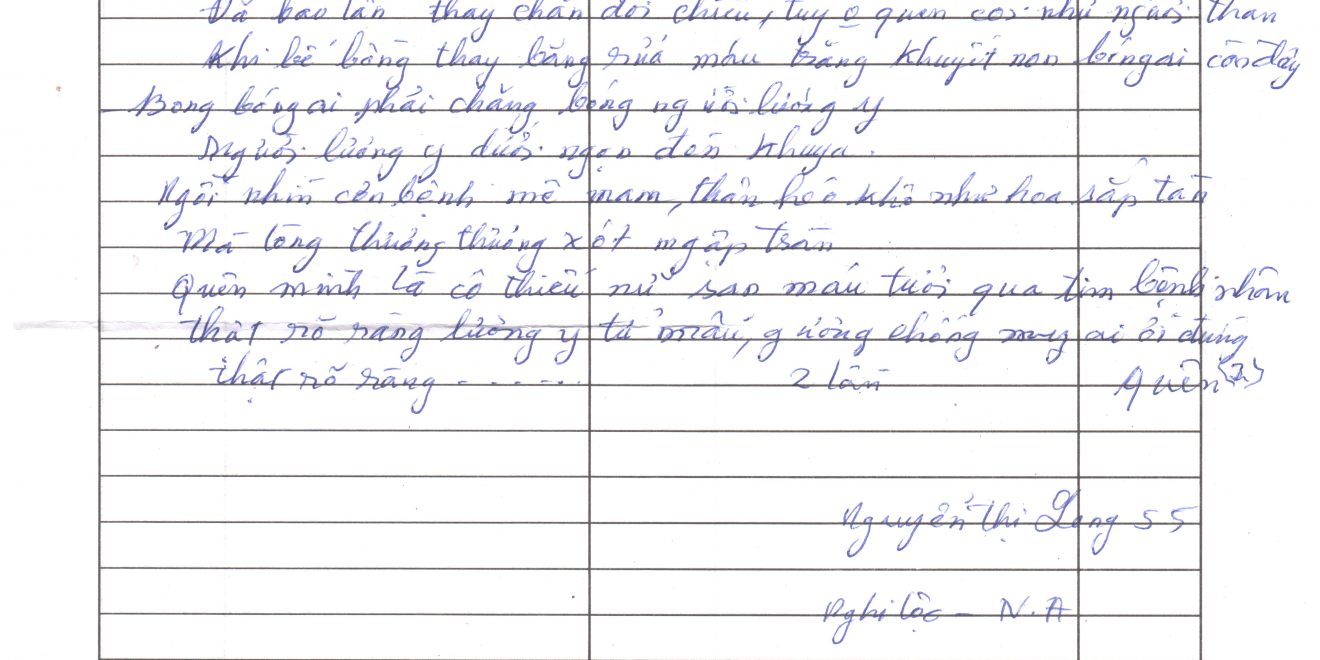 Đã bao lần thay chăn đổi chiếu, tuy o quen coi như người thân
Khi bế bồng thay băng rửa máu trăng khuyết non bóng ai còn đây
- Bong bóng ai phải chăng bóng người lương y
Người lương y dưới ngọn đèn khuya.
Ngồi nhìn con bệnh mê mam, thân héo khô như hoa sắp tàn
Mà lòng thương thương xót ngập tràn
Quên mình là cô thiếu nữ san máu tươi qua tim bệnh nhân
thật rõ ràng lương y từ mẫu, gương chồng may ai ơi đừng
thật rõ ràng ------ 2 lần Quên (2)
Nguyễn Thị Long 55
Nghi Lộc - N.A